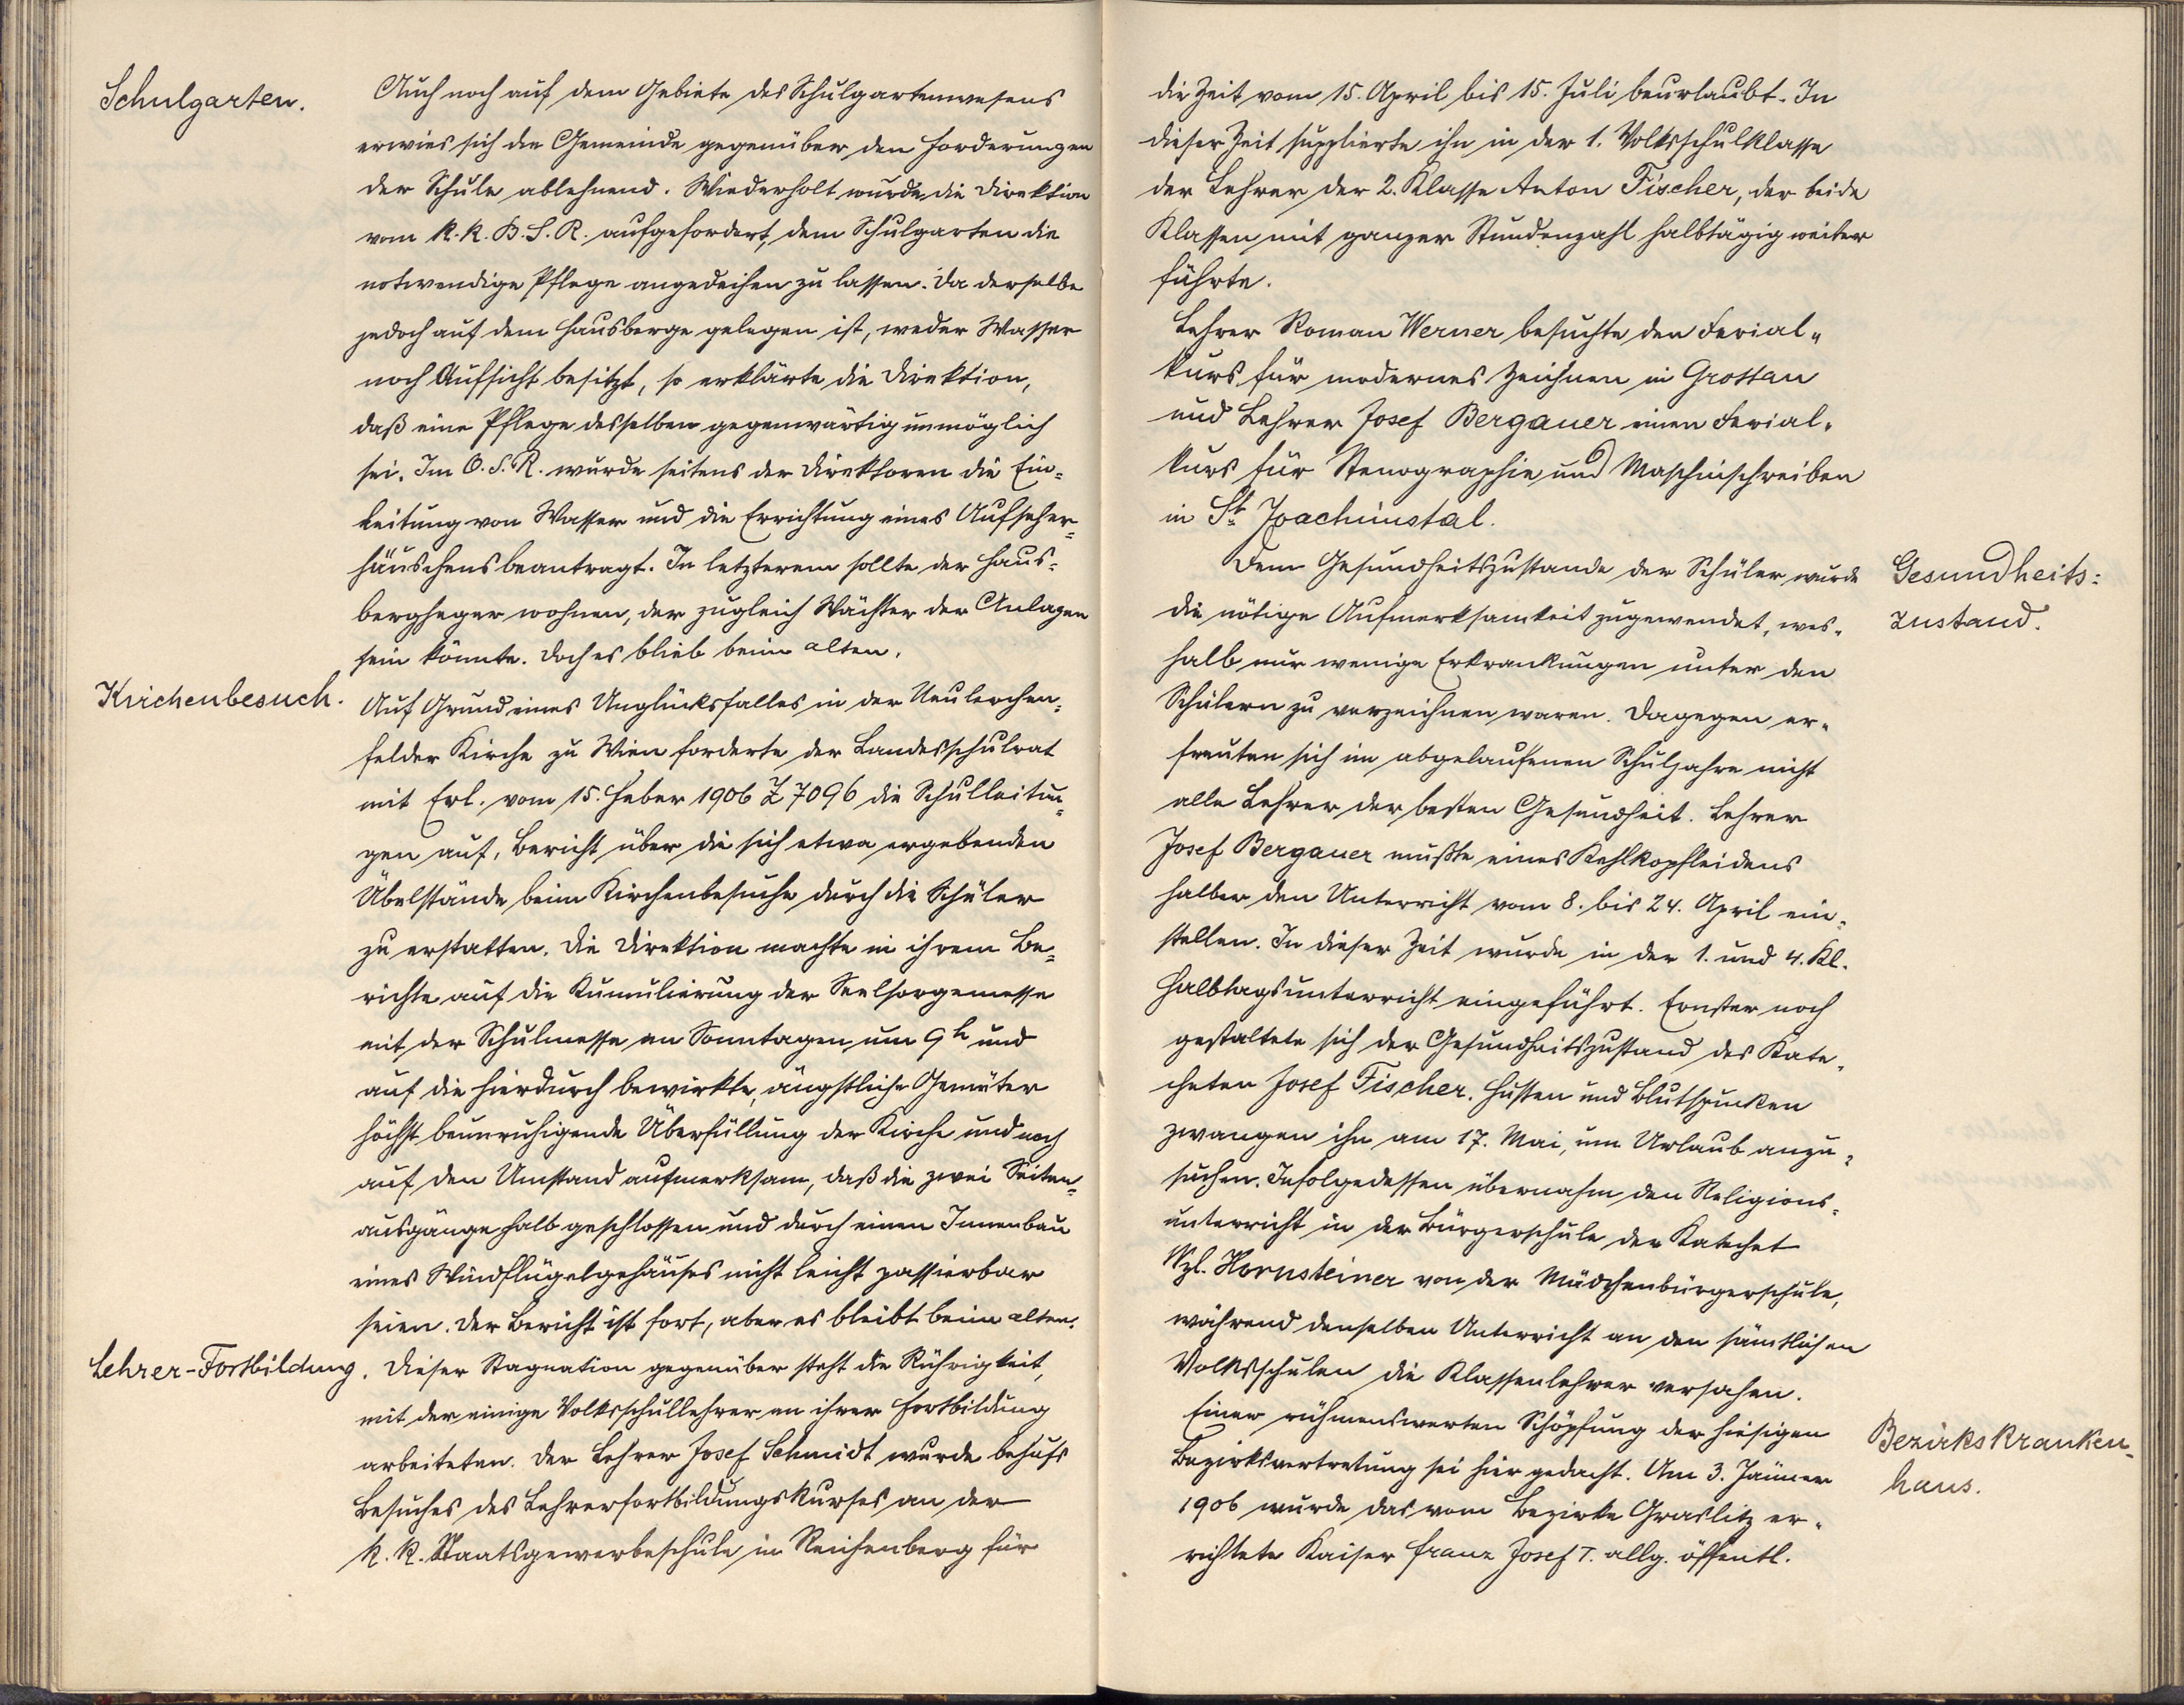 Schulgarten.
Auch noch auf dem Gebiete des Schulgartenwesens
erwies sich die Gemeinde gegenüber den Forderungen
der Schule ablehnend. Wiederholt wurde die Direktion
vom k. k. B. S. R. aufgefordert, dem Schulgarten die
notwendige Pflege angedeihen zu lassen. Da derselbe
jedoch auf dem Hausberge gelegen ist, weder Wasser
noch Aufsicht besitzt, so erklärte die Direktion,
daß eine Pflege desselben gegenwärtig unmöglich
sei. Im O. S. R. wurde seitens der Direktoren die Ein-
leitung von Wasser und die Errichtung eines Aufseher-
häuschens beantragt. In letzterem sollte der Haus-
bergheger wohnen, der zugleich Wächter der Anlagen
sein könnte. Doch es blieb beim alten.
Kirchenbesuch.
Auf Grund eines Unglücksfalles in der Neulerchen-
felder Kirche zu Wien forderte der Landesschulrat
mit Erl. vom 15. Feber 1906 Z 7096 die Schulleitun-
gen auf, Bericht über die sich etwa ergebenden
Übelstände beim Kirchenbesuche durch die Schüler
zu erstatten. Die Direktion machte in ihrem Be-
richte auf die Kumulierung der Seelsorgemesse
mit der Schulmesse an Sonntagen um 9h und
auf die hierdurch bewirkte, ängstliche Gemüter
höchst beunruhigende Überfüllung der Kirche und noch
auf den Umstand aufmerksam, daß die zwei Seiten-
ausgänge halb geschlossen und durch einen Innenbau
eines Windflügelgehäuses nicht leicht passierbar
seien. Der Bericht ist fort, aber es bleibt beim alten.
Lehrer-Fortbildung.
Dieser Stagnation gegenüber steht die Rührigkeit,
mit der einige Volksschullehrer an ihrer Fortbildung
arbeiteten. Der Lehrer Josef Schmidt wurde behufs
Besuches des Lehrerfortbildungskurses an der
k. k. Staatsgewerbeschule in Reichenberg für
die Zeit vom 15. April bis 15. Juli beurlaubt. In
dieser Zeit supplierte ihn in der 1. Volksschulklasse
der Lehrer der 2. Klasse Anton Fischer, der beide
Klassen mit ganzer Stundenzahl halbtägig weiter
führte.
Lehrer Roman Werner besuchte den Ferial-
kurs für modernes Zeichnen in Grottau
und Lehrer Josef Bergauer einen Ferial-
kurs für Stenographie und Maschinschreiben
in St Joachimstal.
Gesundheits-
zustand.
Dem Gesundheitszustande der Schüler wurde
die nötige Aufmerksamkeit zugewendet, wes-
halb nur wenige Erkrankungen unter den
Schülern zu verzeichnen waren. Dagegen er-
freuten sich im abgelaufenen Schuljahre nicht
alle Lehrer der besten Gesundheit. Lehrer
Josef Bergauer mußte eines Kehlkopfleidens
halber den Unterricht vom 8. bis 24. April ein-
stellen. In dieser Zeit wurde in der 1. und 4. Kl.
Halbtagsunterricht eingeführt. Ernster noch
gestaltete sich der Gesundheitszustand des Kate-
cheten Josef Fischer. Husten und Blutspucken
zwangen ihn am 17. Mai, um Urlaub anzu-
suchen. Infolgedessen übernahm den Religions-
unterricht in der Bürgerschule der Katechet
Wzl. Hornsteiner von der Mädchenbürgerschule,
während denselben Unterricht an den sämtlichen
Volksschulen die Klassenlehrer versahen.
Bezirkskranken-
haus.
Einer rühmenswerten Schöpfung der hiesigen
Bezirksvertretung sei hier gedacht. Am 3. Jänner
1906 wurde das vom Bezirke Graslitz er-
richtete Kaiser Franz Josef I. allg. öffentl.